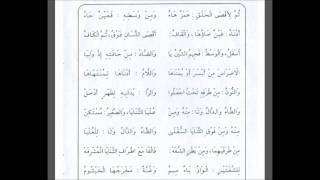 ثُمَّ لِأَقْصَى الْحَلْقِ : هَمْزٌ هَاءُ وَمِنْ وَسَطِهِ : فَعَيْنٌ حَاءُ
أَدْنَاهُ : غَيْنٌ خَاؤُهَا، وَالْقَافُ : أَقْصَى اللِّسَانِ فَوْقُ، ثُمَّ الْكَافُ
أَسْفَلُ، وَالْوَسْطُ : فَجِيمُ الشِّينُ يَا وَالضَّادُ : مِنْ حَافَتِهِ إِذْ وَلِيَا
الاضْرَاسَ مِنْ أَيْسَرَ أَوْ يُمْنَاهَا وَاللَّامُ : أَدْنَاهَا لِمُنْتَهَاهَا
وَالنُّونُ : مِنْ طَرْفِهِ تَحْتُ اجْعَلُوا وَالرَّا : يُدَانِيهِ لِظَهْرٍ أَدْخَلُ
وَالطَّاءُ وَالدَّالُ وَتَا : مِنْهُ وَمِنْ عُلْيَا الثَّنَايَا، وَالصَّفِيرُ : مُسْتَكِنْ
مِنْهُ وَمِنْ فَوْقِ الثَّنَايَا السُّفْلَى وَالظَّاءُ وَالذَّالُ وَثَا : لِلْعُلْيَا
مِنْ طَرَفَيْهِمَا، وَمِنْ بَطْنِ الشَّفَهْ : فَالْفَا مَعَ اطْرَافِ الثَّنَايَا الْمُشْرِفَهْ
لِلشَّفَتَيْنِ : الْوَاوُ بَاءٌ مِيمُ وَغُنَّةٌ : مَخْرَجُهَا الْخَيْشُومُ